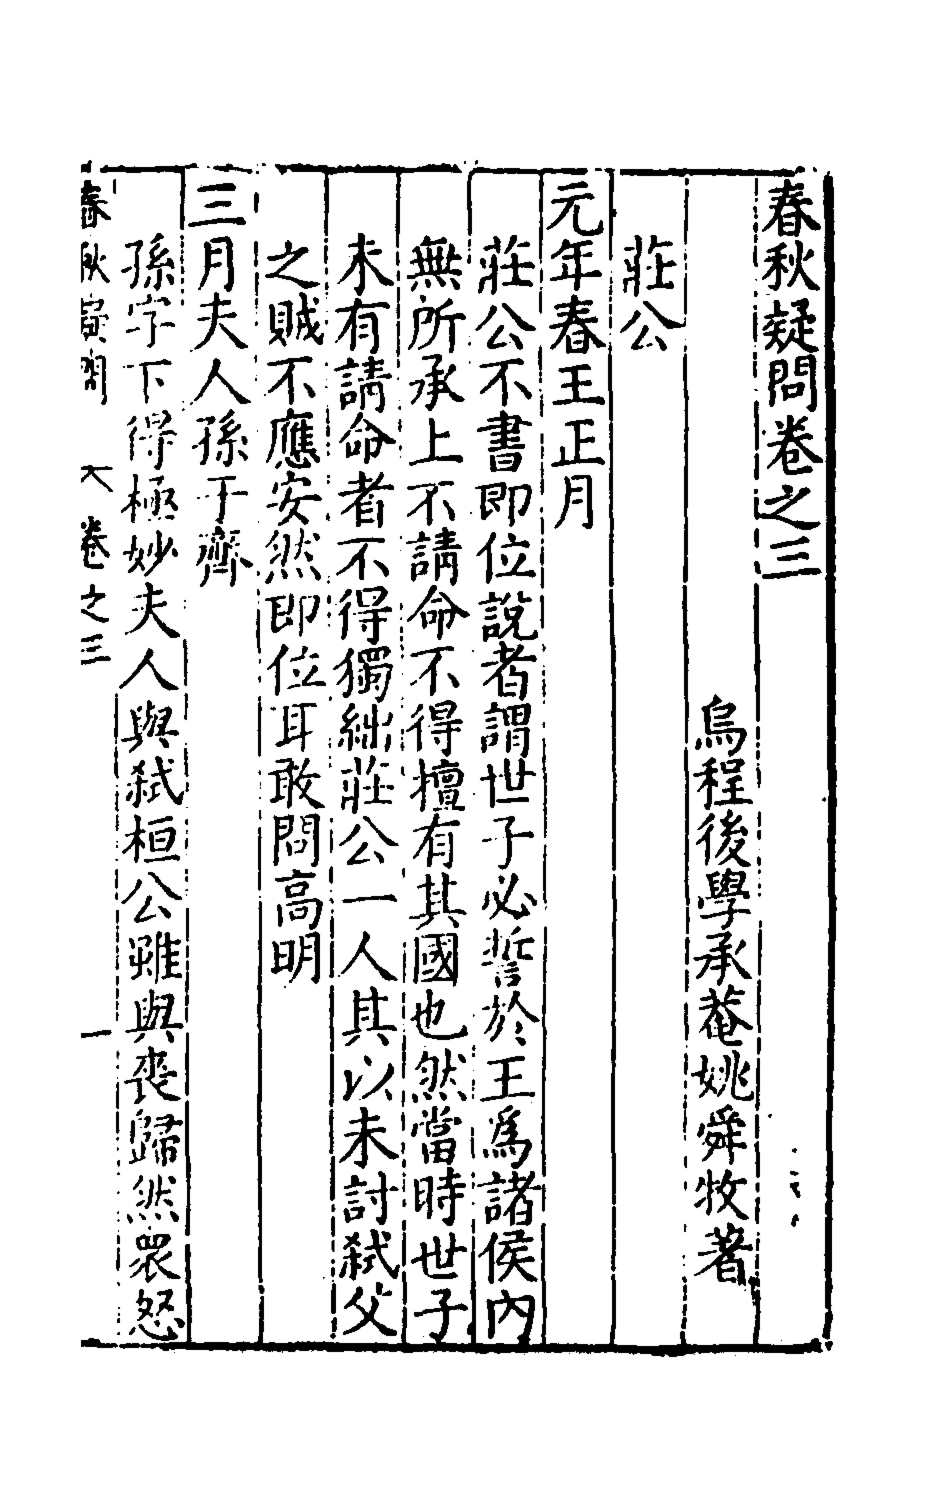 春秋疑問卷之三
烏程後學承菴姚舜牧著
莊公
元年春王正月
莊公不書即位說者謂世子必誓於王爲諸侯內
無所承上不請命不得擅有其國也然當時世子
未有請命者不得獨絀莊公一人其以未討弒父
之賊不應安然即位耳敢問高明
三月夫人孫于齊
孫字下得極妙夫人與弒桓公雖與喪歸然眾怒
春秋疑問 大 卷之三 一